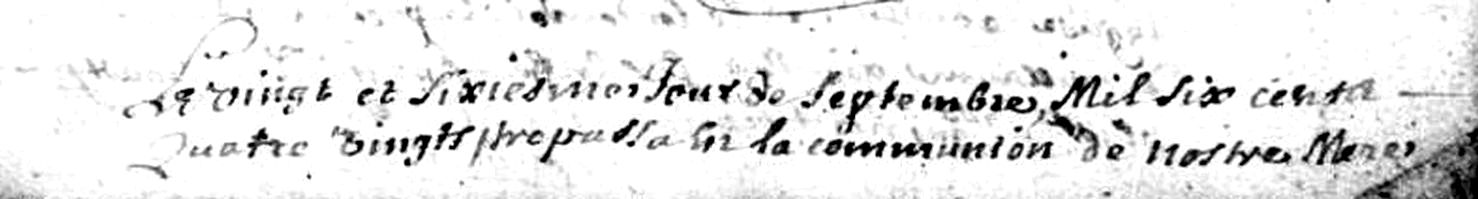 Le vingt et sixiesme Jour de Septembre Mil six cents
quatre vingts trepassa en la communion de nostre Mere